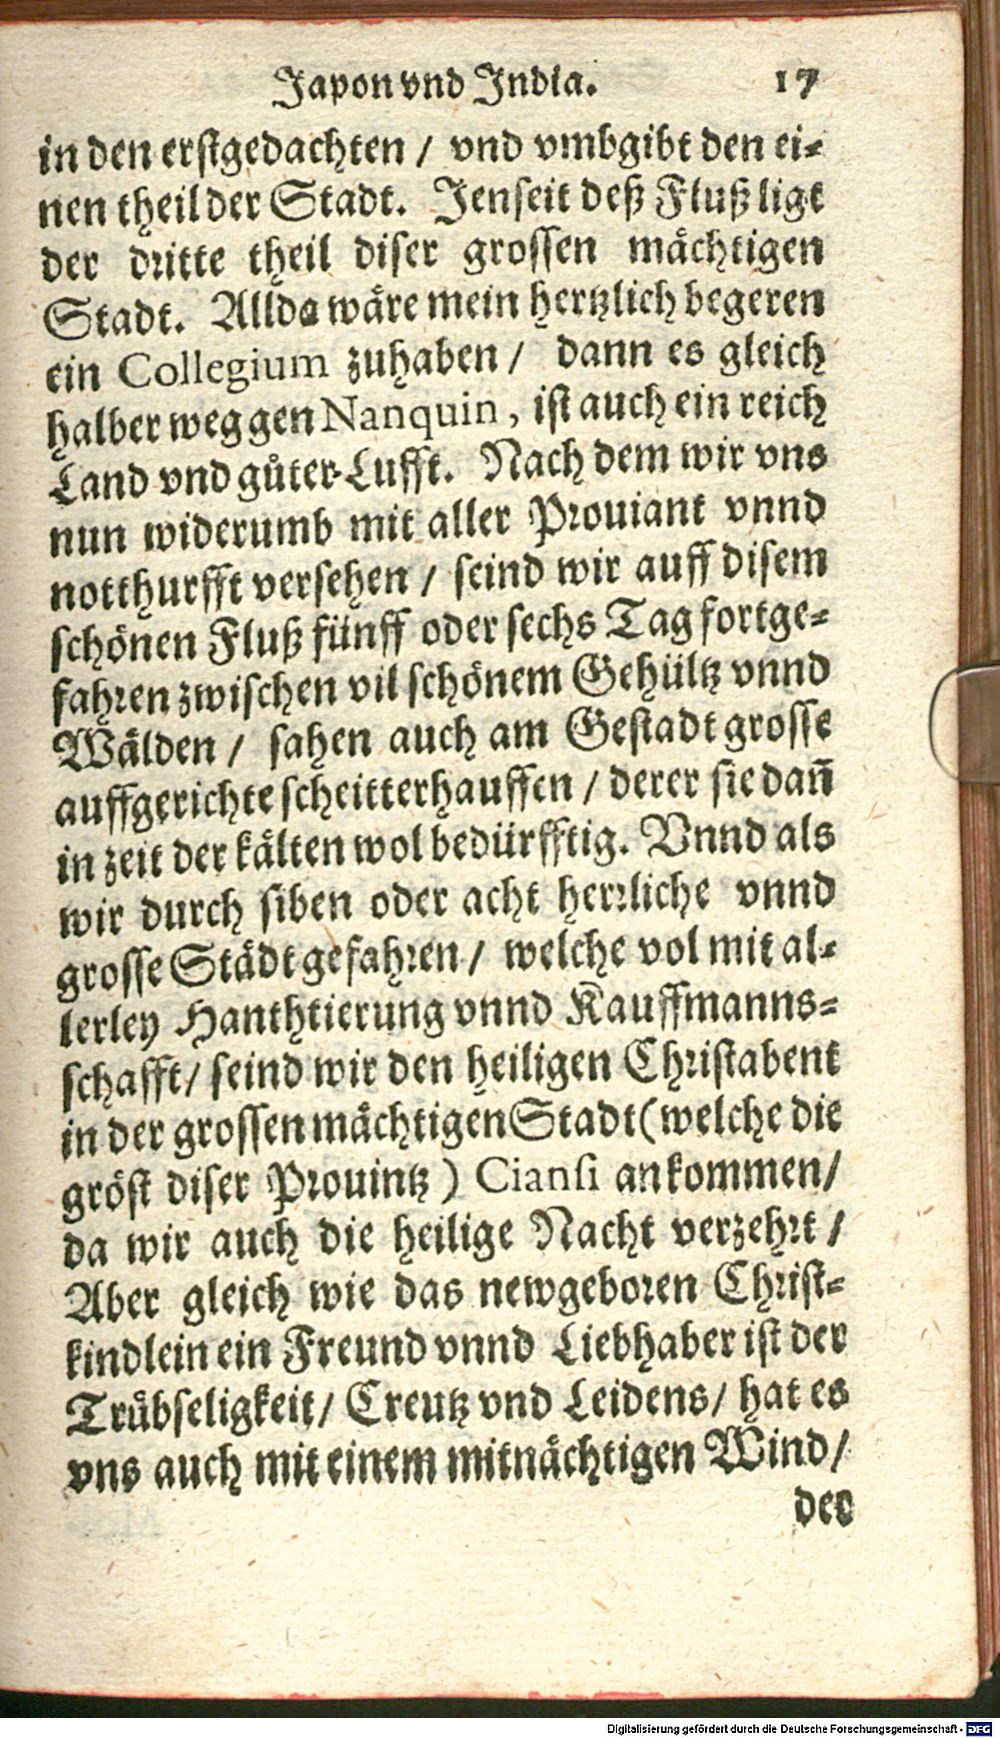 Japon vnd India. 17
in den erstgedachten / vnd vmbgibt den ei-
nen theil der Stadt. Jenseit deß Fluß ligt
der dritte theil diser grossen mächtigen
Stadt. Allda wäre mein hertzlich begeren
ein Collegium zuhaben / dann es gleich
halber weg gen Nanquin, ist auch ein reich
Land vnd gůter Lufft. Nach dem wir vns
nun widerumb mit aller Prouiant vnnd
notthurfft versehen / seind wir auff disem
schönen Fluß fünff oder sechs Tag fortge-
fahren zwischen vil schönem Gehültz vnnd
Wälden / sahen auch am Gestadt grosse
auffgerichte scheitterhauffen / derer sie dañ
in zeit der kälten wol bedürfftig. Vnnd als
wir durch siben oder acht herrliche vnnd
grosse Städt gefahren / welche vol mit al-
lerley Hanthtierung vnnd Kauffmanns-
schafft / seind wir den heiligen Christabent
in der grossen mächtigen Stadt (welche die
gröst diser Prouintz) Ciansi ankommen /
da wir auch die heilige Nacht verzehrt /
Aber gleich wie das newgeboren Christ-
kindlein ein Freund vnnd Liebhaber ist der
Trůbseligkeit / Creutz vnd Leidens / hat es
vns auch mit einem mitnächtigen Wind /
der
Digitalisierung gefördert durch die Deutsche Forschungsgemeinschaft - DFG